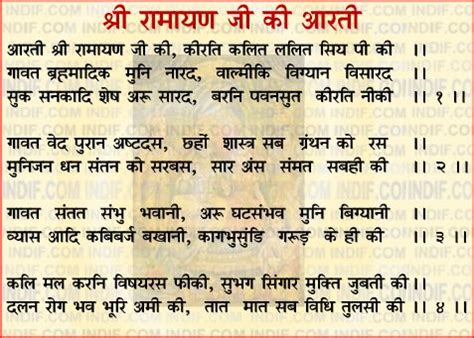 श्री रामायण जी की आरती
आरती श्री रामायण जी की, कीरति कलित ललित सिय पी की ।।
गावत ब्रह्मादिक मुनि नारद, वाल्मीकि विग्यान विसारद ।
सुक सनकादि शेष अरू सारद, बरनि पवनसुत कीरति नीकी ।। १ ।।
गावत वेद पुरान अष्टदस, छहों शास्त्र सब ग्रंथन को रस
मुनिजन धन संतन को सरबस, सार अंस संमत सबही की ।। २ ।।
गावत संतत संभु भवानी, अरू घटसंभव मुनि बिग्यानी ।
व्यास आदि कबिबर्ज बखानी, कागभुसुंडि गरूड़ के ही की ।। ३ ।।
कलि मल करनि विषयरस फीकी, सुभग सिंगार मुक्ति जुबती की ।
दलन रोग भव भूरि अमी की, तात मात सब विधि तुलसी की ।। ४ ।।